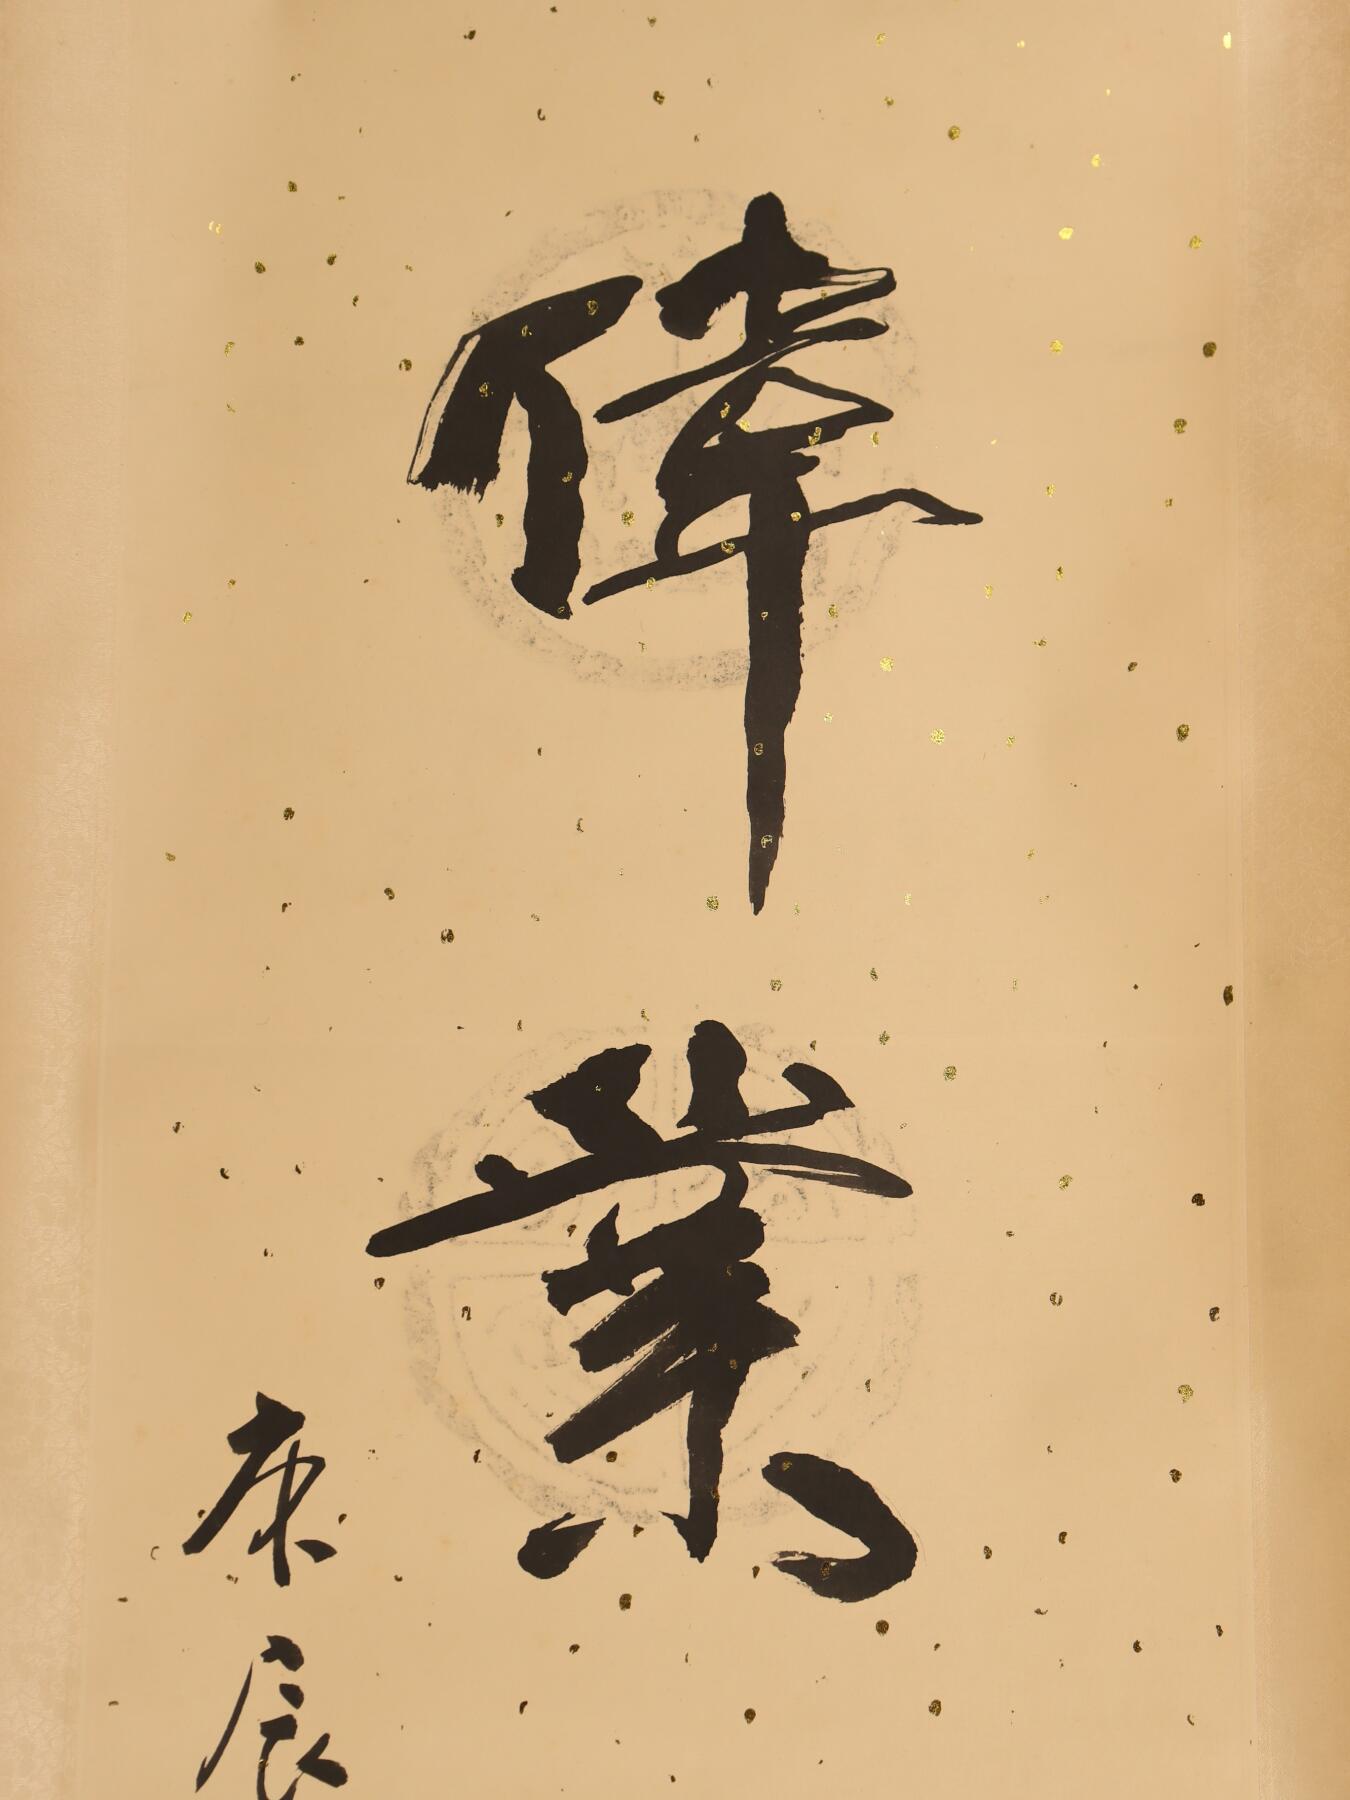 偉業
庚辰